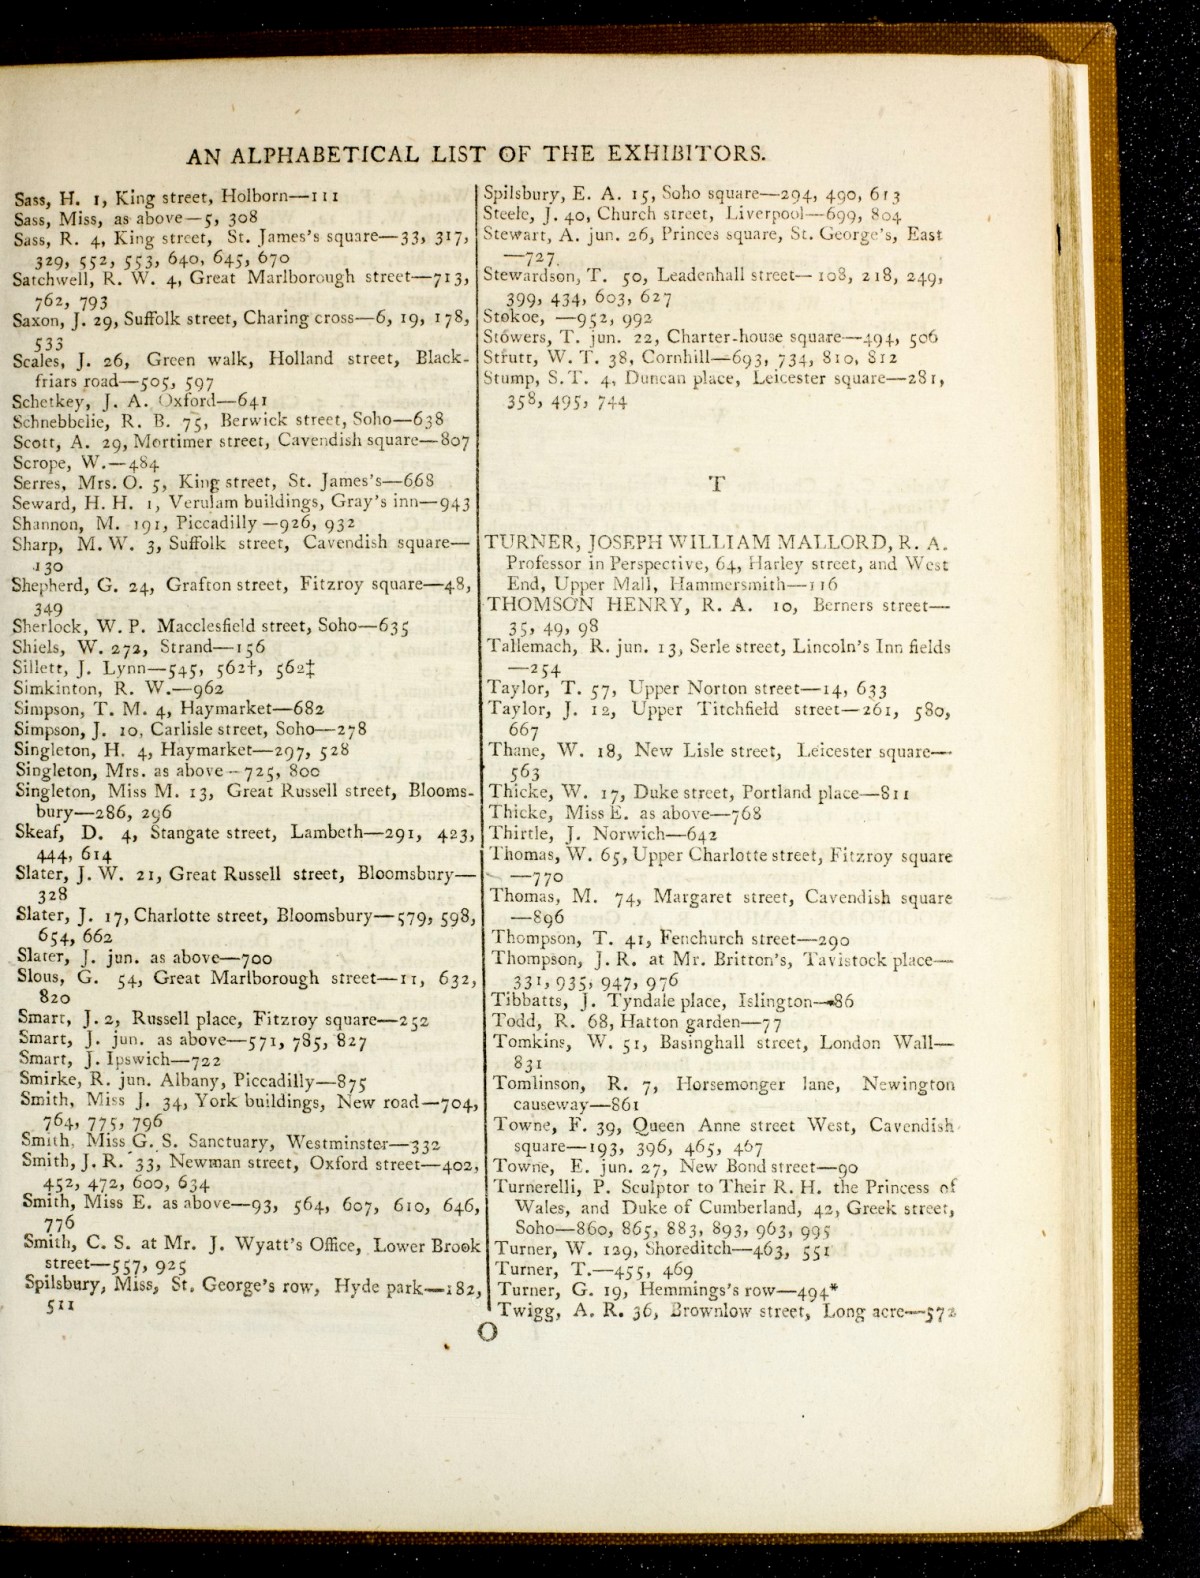 AN ALPHABETICAL LIST OF THE EXHIBITORS.
Sass, H. 1, King street, Holborn—111
Sass, Miss, as above—5, 308
Sass, R. 4, King street, St. James's square—33, 317,
329, 552, 553, 640, 645, 670
Satchwell, R. W. 4, Great Marlborough street—713,
762, 793
Saxon, J. 29, Suffolk street, Charing cross—6, 19, 178,
533
Scales, J. 26, Green walk, Holland street, Black-
friars road—505, 597
Schetkey, J. A. Oxford—641
Schnebbelie, R. B. 75, Berwick street, Soho—638
Scott, A. 29, Mortimer street, Cavendish square—807
Scrope, W.—484
Serres, Mrs. O. 5, King street, St. James's—668
Seward, H. H. 1, Verulam buildings, Gray's inn—943
Shannon, M. 191, Piccadilly—926, 932
Sharp, M. W. 3, Suffolk street, Cavendish square—
130
Shepherd, G. 24, Grafton street, Fitzroy square—48,
349
Sherlock, W. P. Macclesfield street, Soho—635
Shiels, W. 272, Strand—156
Sillett, J. Lynn—545, 562†, 562‡
Simkinton, R. W.—962
Simpson, T. M. 4, Haymarket—682
Simpson, J. 10, Carlisle street, Soho—278
Singleton, H. 4, Haymarket—297, 528
Singleton, Mrs. as above—725, 800
Singleton, Miss M. 13, Great Russell street, Blooms-
bury—286, 296
Skeaf, D. 4, Stangate street, Lambeth—291, 423,
444, 614
Slater, J. W. 21, Great Russell street, Bloomsbury—
328
Slater, J. 17, Charlotte street, Bloomsbury—579, 598,
654, 662
Slater, J. jun. as above—700
Slous, G. 54, Great Marlborough street—11, 632,
820
Smart, J. 2, Russell place, Fitzroy square—252
Smart, J. jun. as above—571, 785, 827
Smart, J. Ipswich—722
Smirke, R. jun. Albany, Piccadilly—875
Smith, Miss J. 34, York buildings, New road—704,
764, 775, 796
Smith, Miss G. S. Sanctuary, Westminster—332
Smith, J. R. 33, Newman street, Oxford street—402,
452, 472, 600, 634
Smith, Miss E. as above—93, 564, 607, 610, 646,
776
Smith, C. S. at Mr. J. Wyatt's Office, Lower Brook
street—557, 925
Spilsbury, Miss, St. George's row, Hyde park—182,
511
Spilsbury, E. A. 15, Soho square—294, 490, 613
Steele, J. 40, Church street, Liverpool—699, 804
Stewart, A. jun. 26, Princes square, St. George's, East
—727.
Stewardson, T. 50, Leadenhall street—108, 218, 249,
399, 434, 603, 627
Stokoe, —952, 992
Stowers, T. jun. 22, Charter-house square—494, 506
Strutt, W. T. 38, Cornhill—693, 734, 810, 812
Stump, S. T. 4, Duncan place, Leicester square—281,
358, 495, 744
T
TURNER, JOSEPH WILLIAM MALLORD, R. A.
Professor in Perspective, 64, Harley street, and West
End, Upper Mall, Hammersmith—116
THOMSON HENRY, R. A. 10, Berners street—
35, 49, 98
Tallemach, R. jun. 13, Serle street, Lincoln's Inn fields
—254
Taylor, T. 57, Upper Norton street—14, 633
Taylor, J. 12, Upper Titchfield street—261, 580,
667
Thane, W. 18, New Lisle street, Leicester square—
563
Thicke, W. 17, Duke street, Portland place—811
Thicke, Miss E. as above—768
Thirtle, J. Norwich—642
Thomas, W. 65, Upper Charlotte street, Fitzroy square
—770
Thomas, M. 74, Margaret street, Cavendish square
—896
Thompson, T. 41, Fenchurch street—290
Thompson, J. R. at Mr. Britton's, Tavistock place—
331, 935, 947, 976
Tibbatts, J. Tyndale place, Islington—86
Todd, R. 68, Hatton garden—77
Tomkins, W. 51, Basinghall street, London Wall—
831
Tomlinson, R. 7, Horsemonger lane, Newington
causeway—861
Towne, F. 39, Queen Anne street West, Cavendish
square—193, 396, 465, 467
Towne, E. jun. 27, New Bond street—90
Turnerelli, P. Sculptor to Their R. H. the Princess of
Wales, and Duke of Cumberland, 42, Greek street,
Soho—860, 865, 883, 893, 963, 995
Turner, W. 129, Shoreditch—463, 551
Turner, T.—455, 469
Turner, G. 19, Hemmings's row—494*
Twigg, A. R. 36, Brownlow street, Long acre—572
O